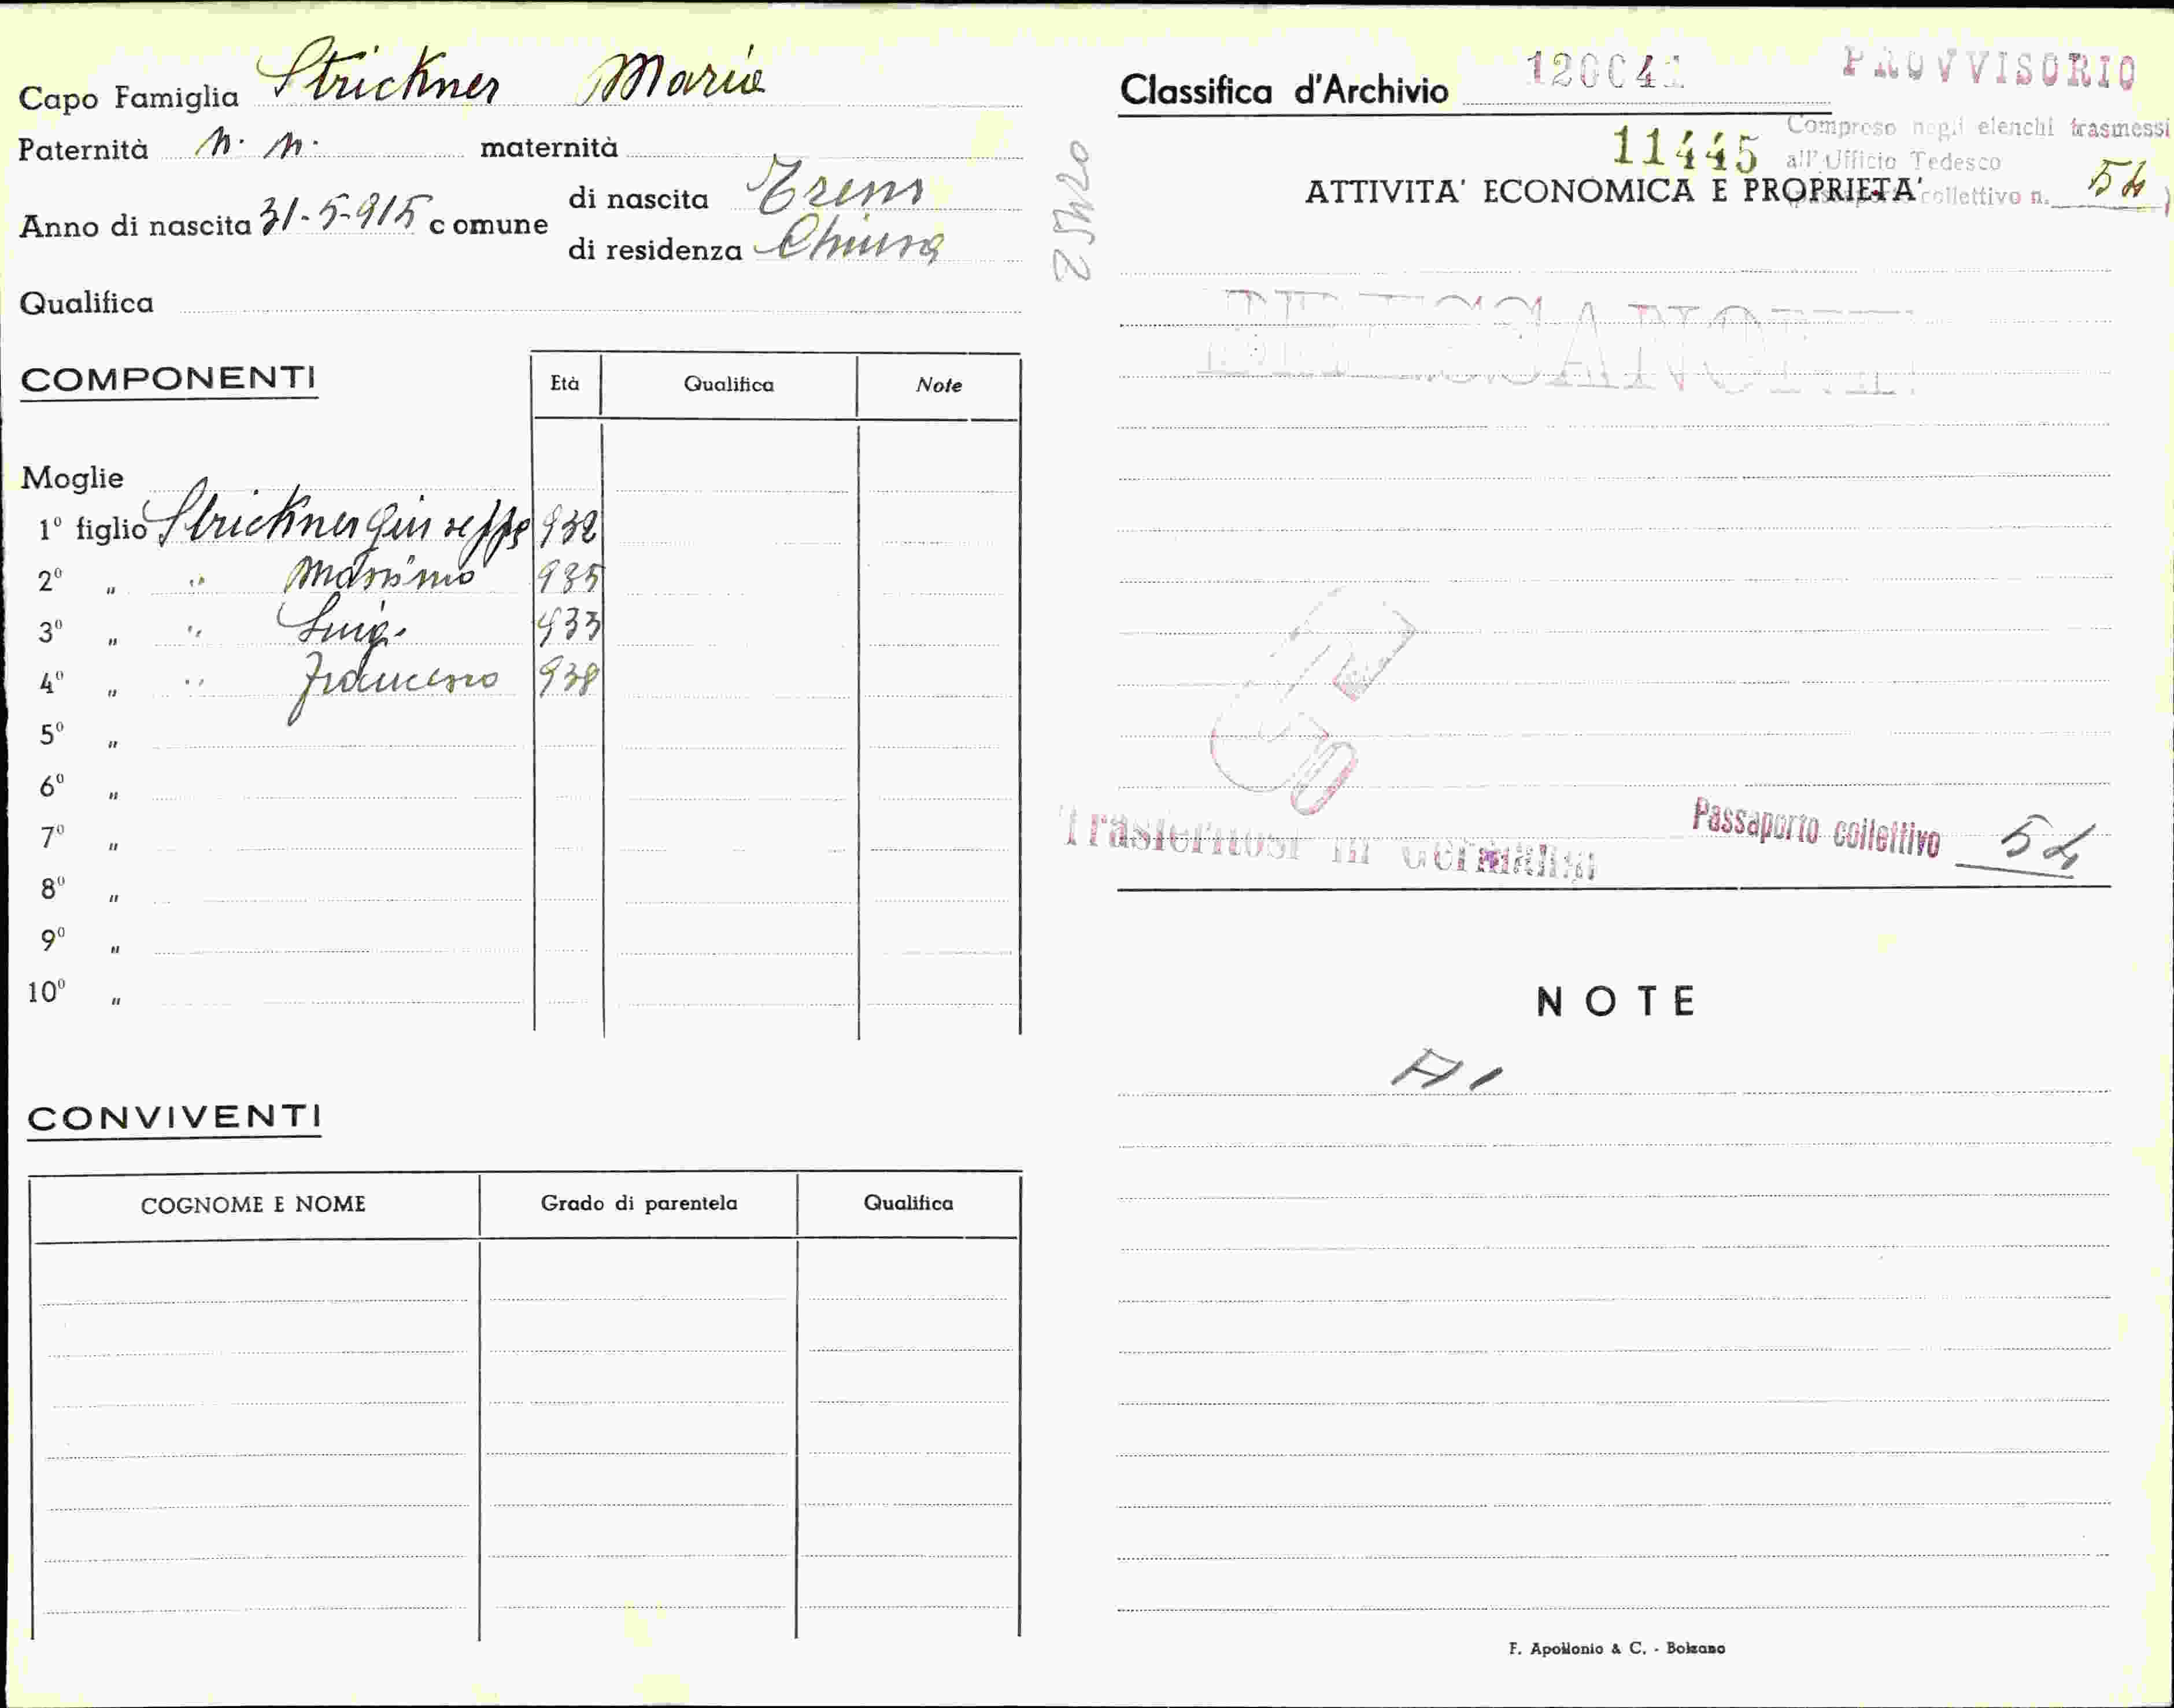 Capo Famiglia Strickner Maria
Paternità n. n. maternità
Anno di nascita 31-5-915 comune
di nascita Trens
di residenza Chiusa
Qualifica
COMPONENTI
Età Qualifica Note
Moglie
1º figlio Strickner Giuseppe 932
2º " " Massimo 935
3º " " Luigi 933
4º " " Francesco 938
5º "
6º "
7º "
8º "
9º "
10º "
CONVIVENTI
COGNOME E NOME Grado di parentela Qualifica
Classifica d'Archivio
PROVVISORIO
11445
Compreso negli elenchi trasmessi
all'Ufficio Tedesco
collettivo n. 54
ATTIVITA' ECONOMICA E PROPRIETA'
Trasferitosi in Germania
Passaporto collettivo 54
NOTE
F. Apollonio & C. - Bolzano